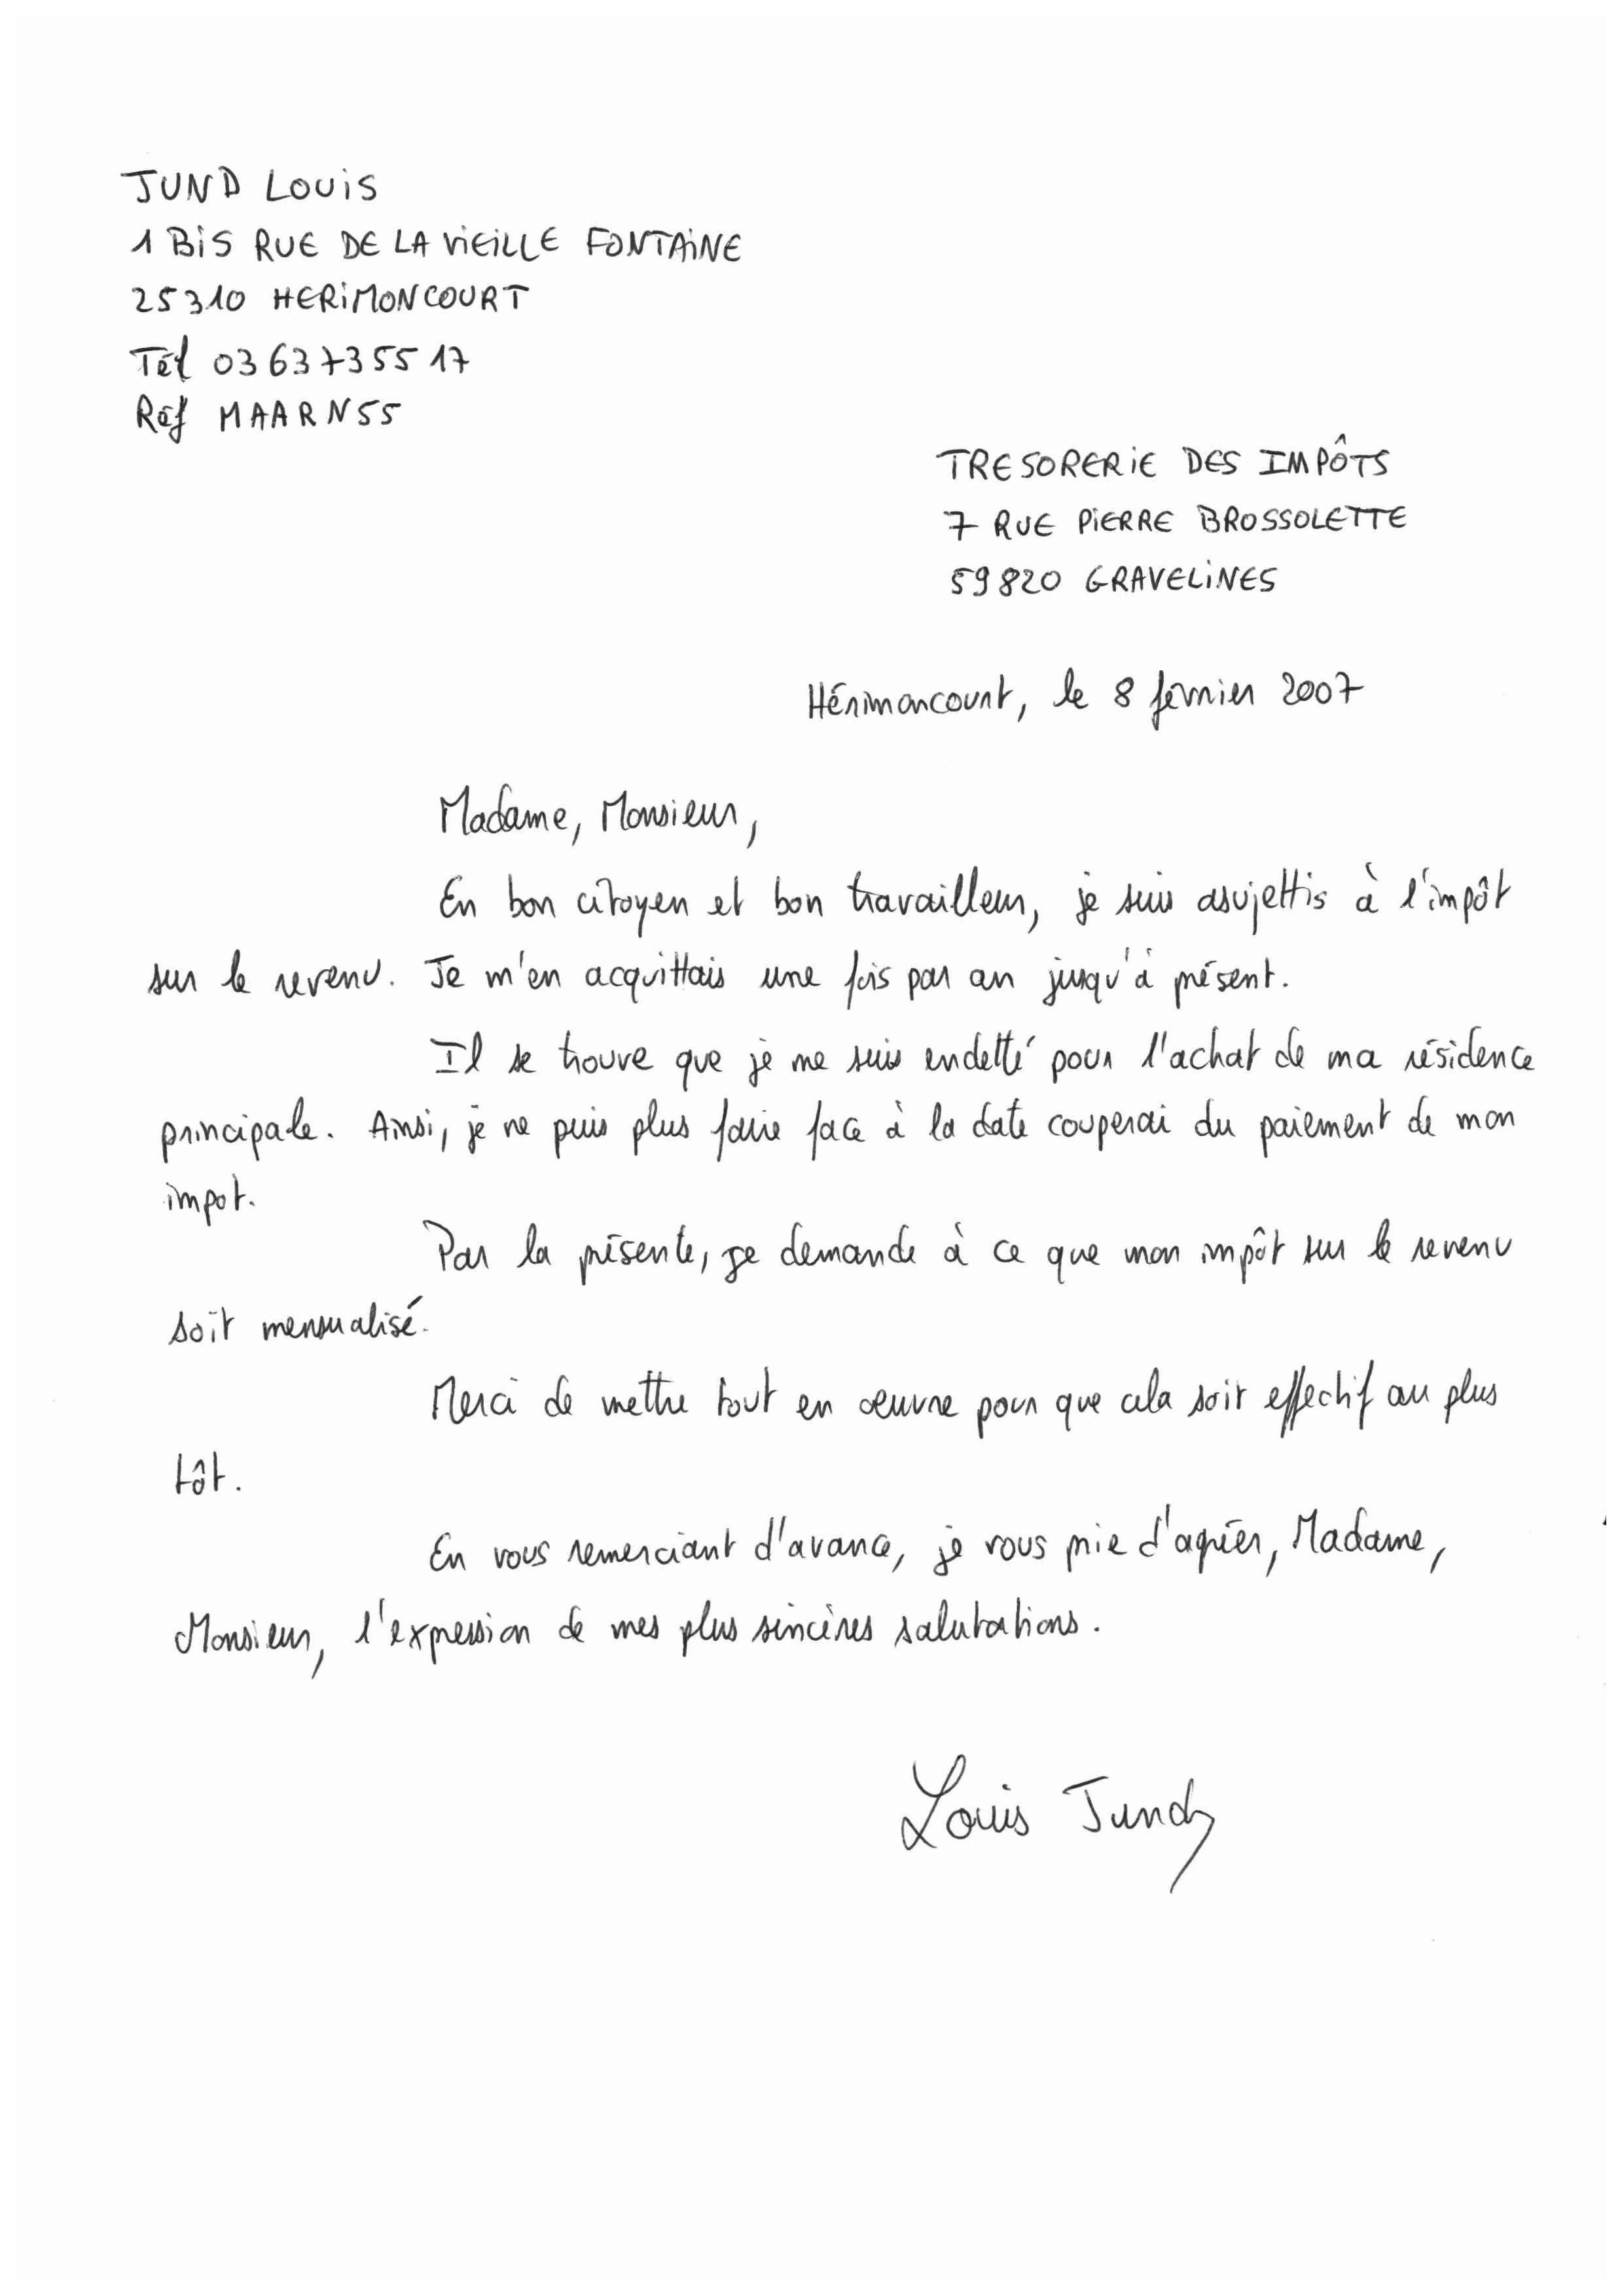 JUND LOUIS
1 BIS RUE DE LA VIEILLE FONTAINE
25310 HERIMONCOURT
Tél 03 63 73 55 17
Réf MAARN55
TRESORERIE DES IMPÔTS
7 RUE PIERRE BROSSOLETTE
59820 GRAVELINES
Hérimoncourt, le 8 février 2007
Madame, Monsieur,
En bon citoyen et bon travailleur, je suis asujettis à l'impôt
sur le revenu. Je m'en acquittais une fois par an jusqu'à présent.
Il se trouve que je me suis endetté pour l'achat de ma résidence
principale. Ainsi, je ne puis plus faire face à la date couperai du paiement de mon
impot.
Par la présente, je demande à ce que mon impôt sur le revenu
soit mensualisé.
Merci de mettre tout en œuvre pour que cela soit effectif au plus
tôt.
En vous remerciant d'avance, je vous prie d'agréer, Madame,
Monsieur, l'expression de mes plus sincères salutations.
Louis Jund